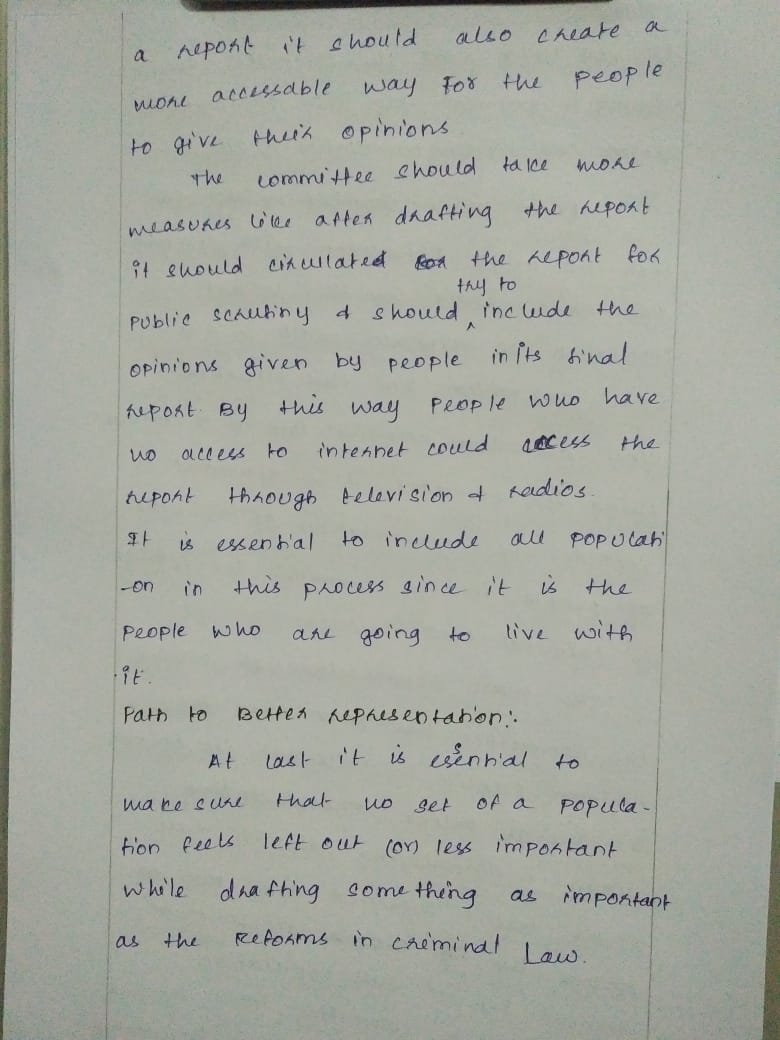 a report it should also create a
more accessable way For the people
to give their opinions
The committee should take more
measures like after drafting the report
it should circulated the report for
try to
public scrutiny & should include the
opinions given by people in its final
report. By this way people who have
no access to internet could access the
report through television & radios.
It is essential to include all populati
-on in this process since it is the
people who are going to live with
it.
Path to Better representation:.
At last it is esential to
make sure that no set of a popula-
tion feels left out (or) less important
while drafting something as important
as the Reforms in criminal Law.